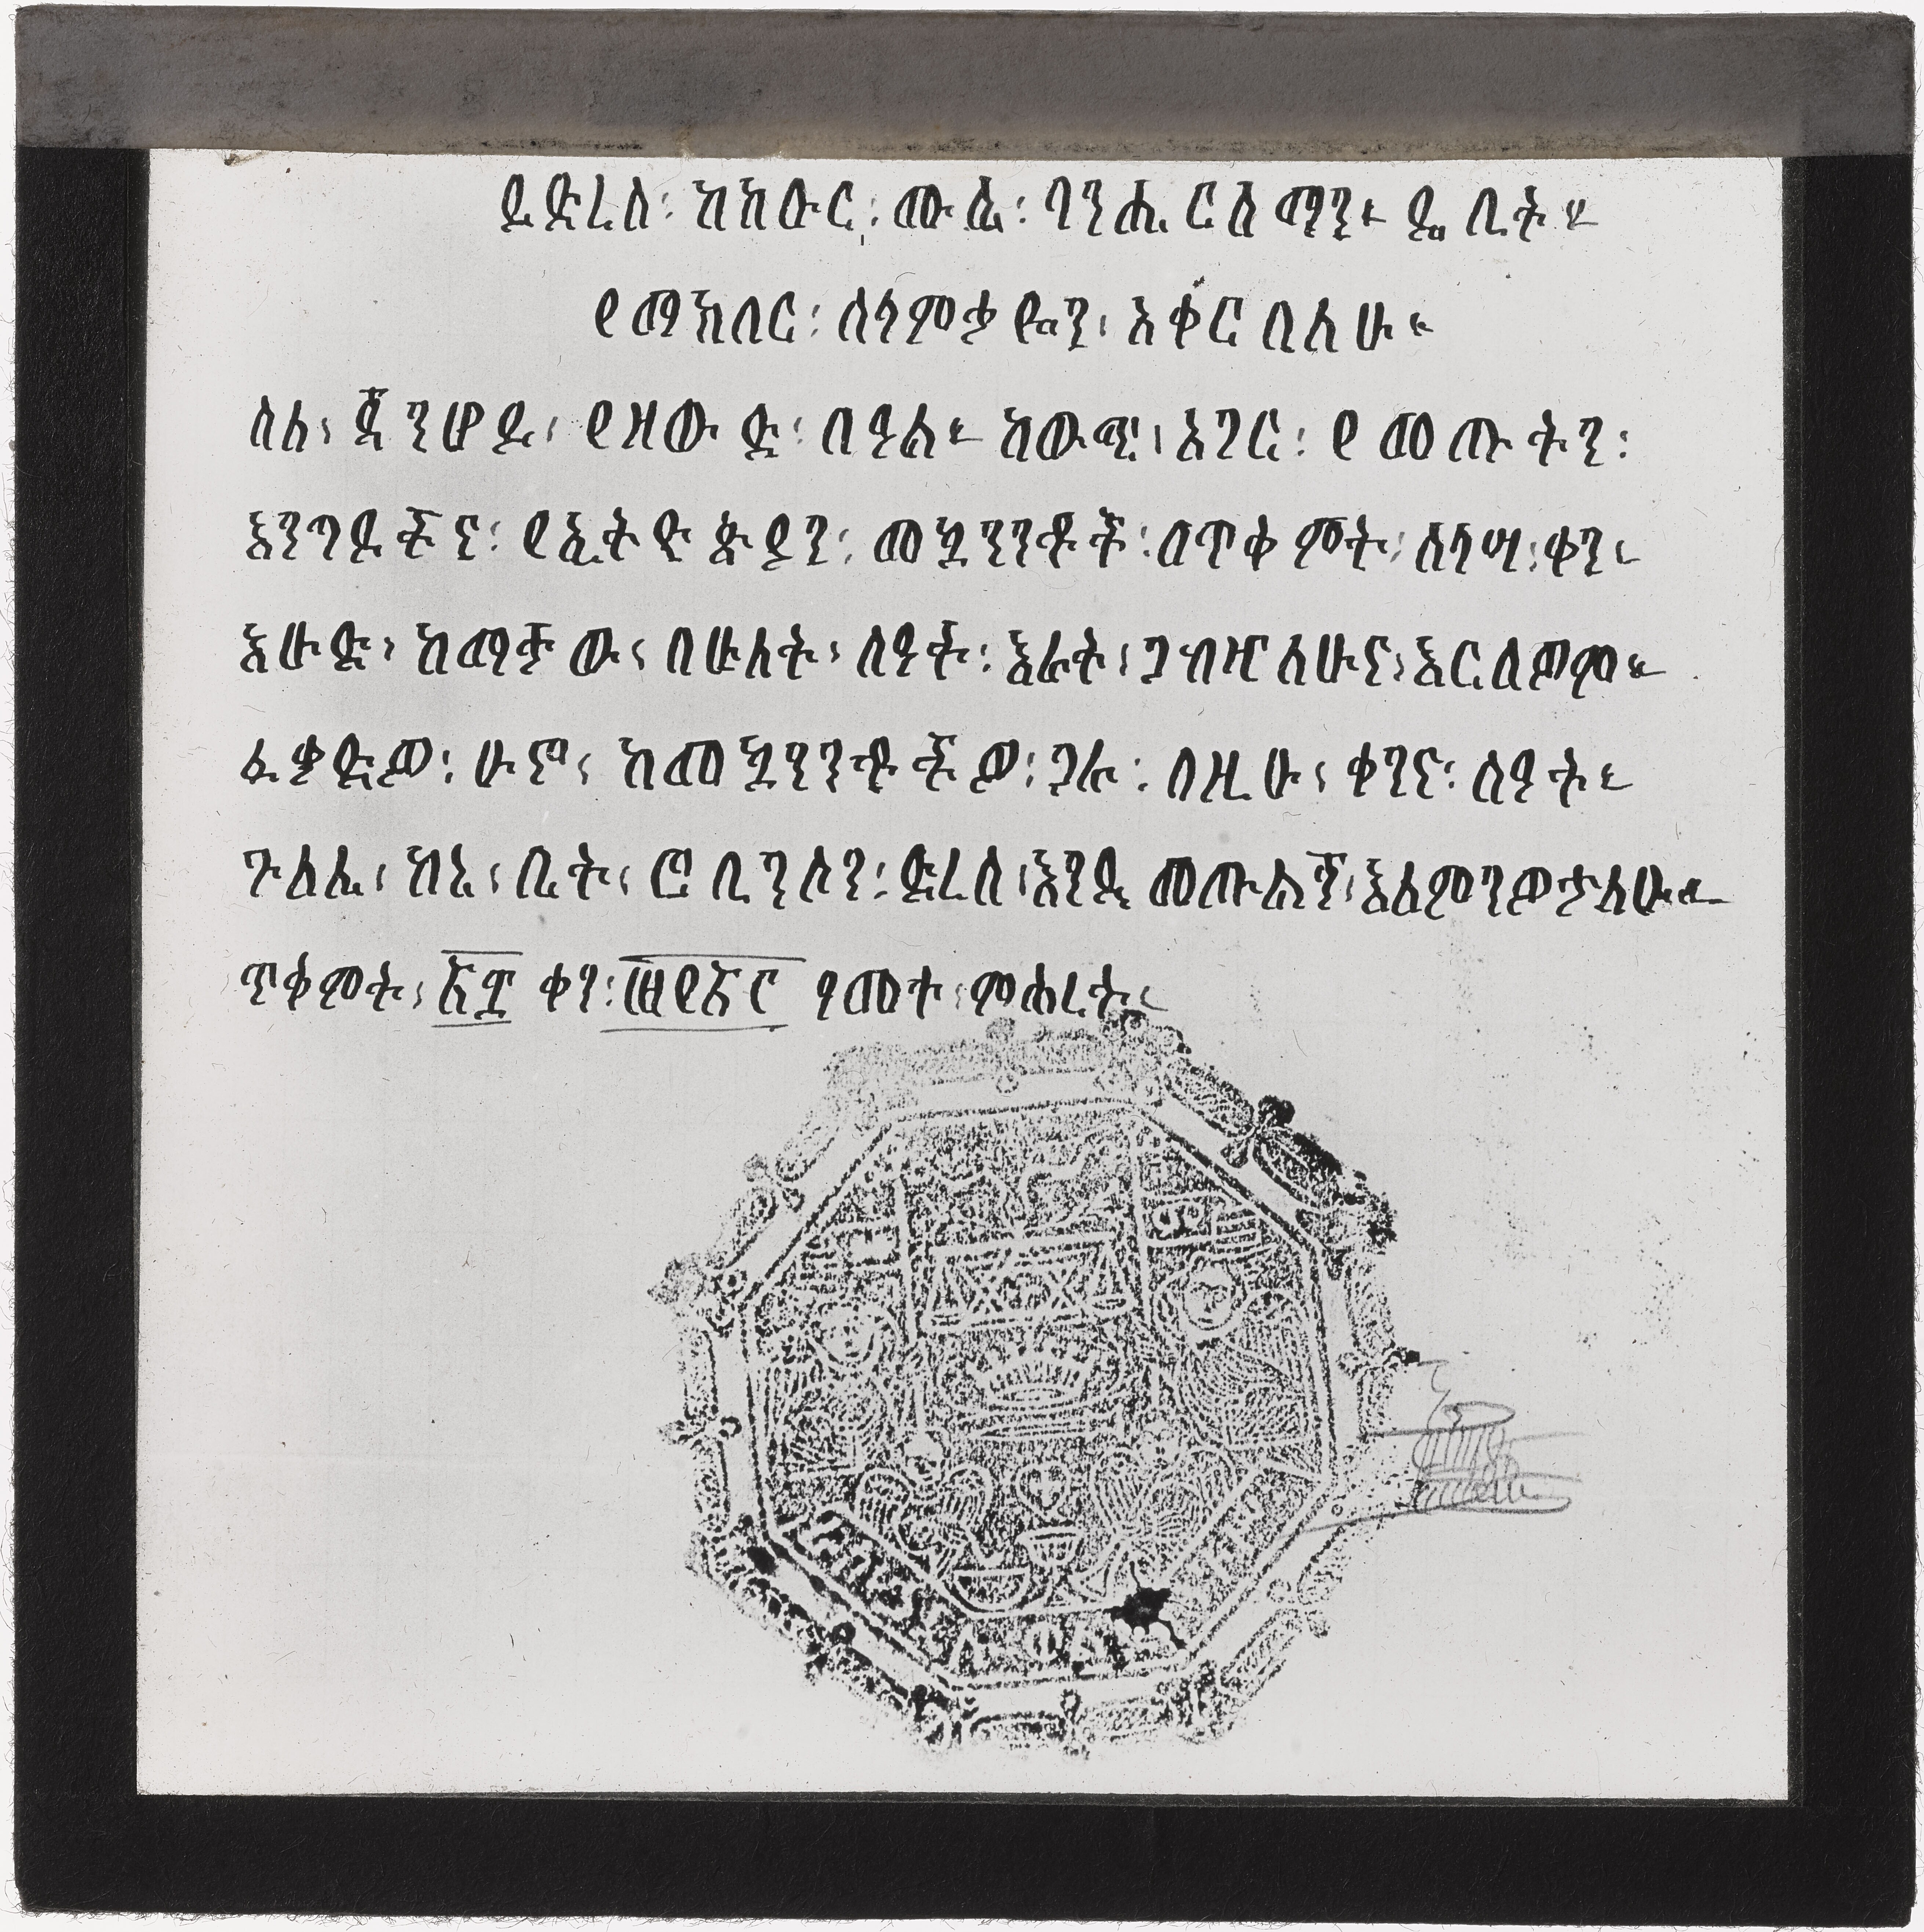 ይድረስ፡ ከክቡር፡ ሙሴ፡ ባንሔርስማን። ዴቤት።
የማክበር፡ ሰላምታዬን፡ አቀርባለሁ።
ስለ፡ ጃንሆይ፡ የዘውድ፡ በዓል። ከውጭ፡ አገር፡ የመጡትን፡
እንግዶችና፡ የኢትዮጵያን፡ መኳንንቶች፡ በጥቅምት፡ ሰላሣ፡ ቀን።
እሁድ፡ ከማታው፡ በሁለት፡ ሰዓት፡ እራት፡ ጋብዣለሁና፡ እርሰዎም።
ፈቃድዎ፡ ሁኖ፡ ከመኳንንቶችዎ፡ ጋራ፡ በዚሁ፡ ቀንና፡ ሰዓት።
ጉለሌ፡ ከኔ፡ ቤት፡ ሮቢንሰን፡ ድረስ፡ እንዲመጡልኝ፡ እለምንዎታለሁ።
ጥቅምት፡ ፳፯ ቀን፡ ፲፱፻፳፫ ዓመተ፡ ምሕረት።